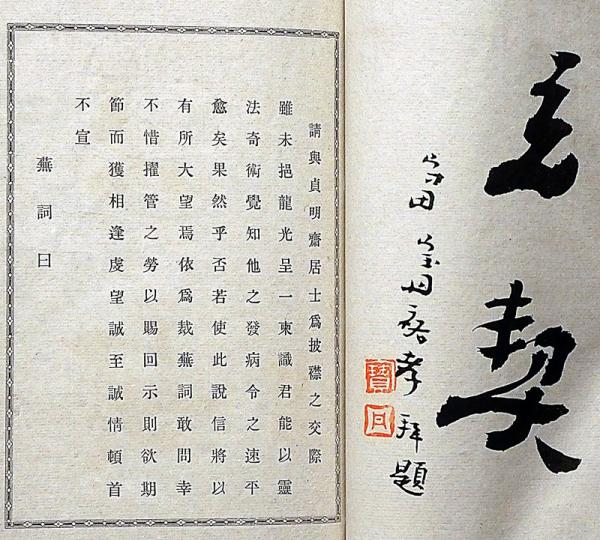 玄契
孝拜題
寶
請與貞明齋居士爲披襟之交際
雖未挹龍光呈一柬識君能以靈
法奇術覺知他之發病令之速平
愈矣果然乎否若使此說信將以
有所大望焉依爲裁蕪詞敢問幸
不惜擢管之勞以賜回示則欲期
節而獲相逢虔望誠至誠情頓首
不宣
蕪詞曰